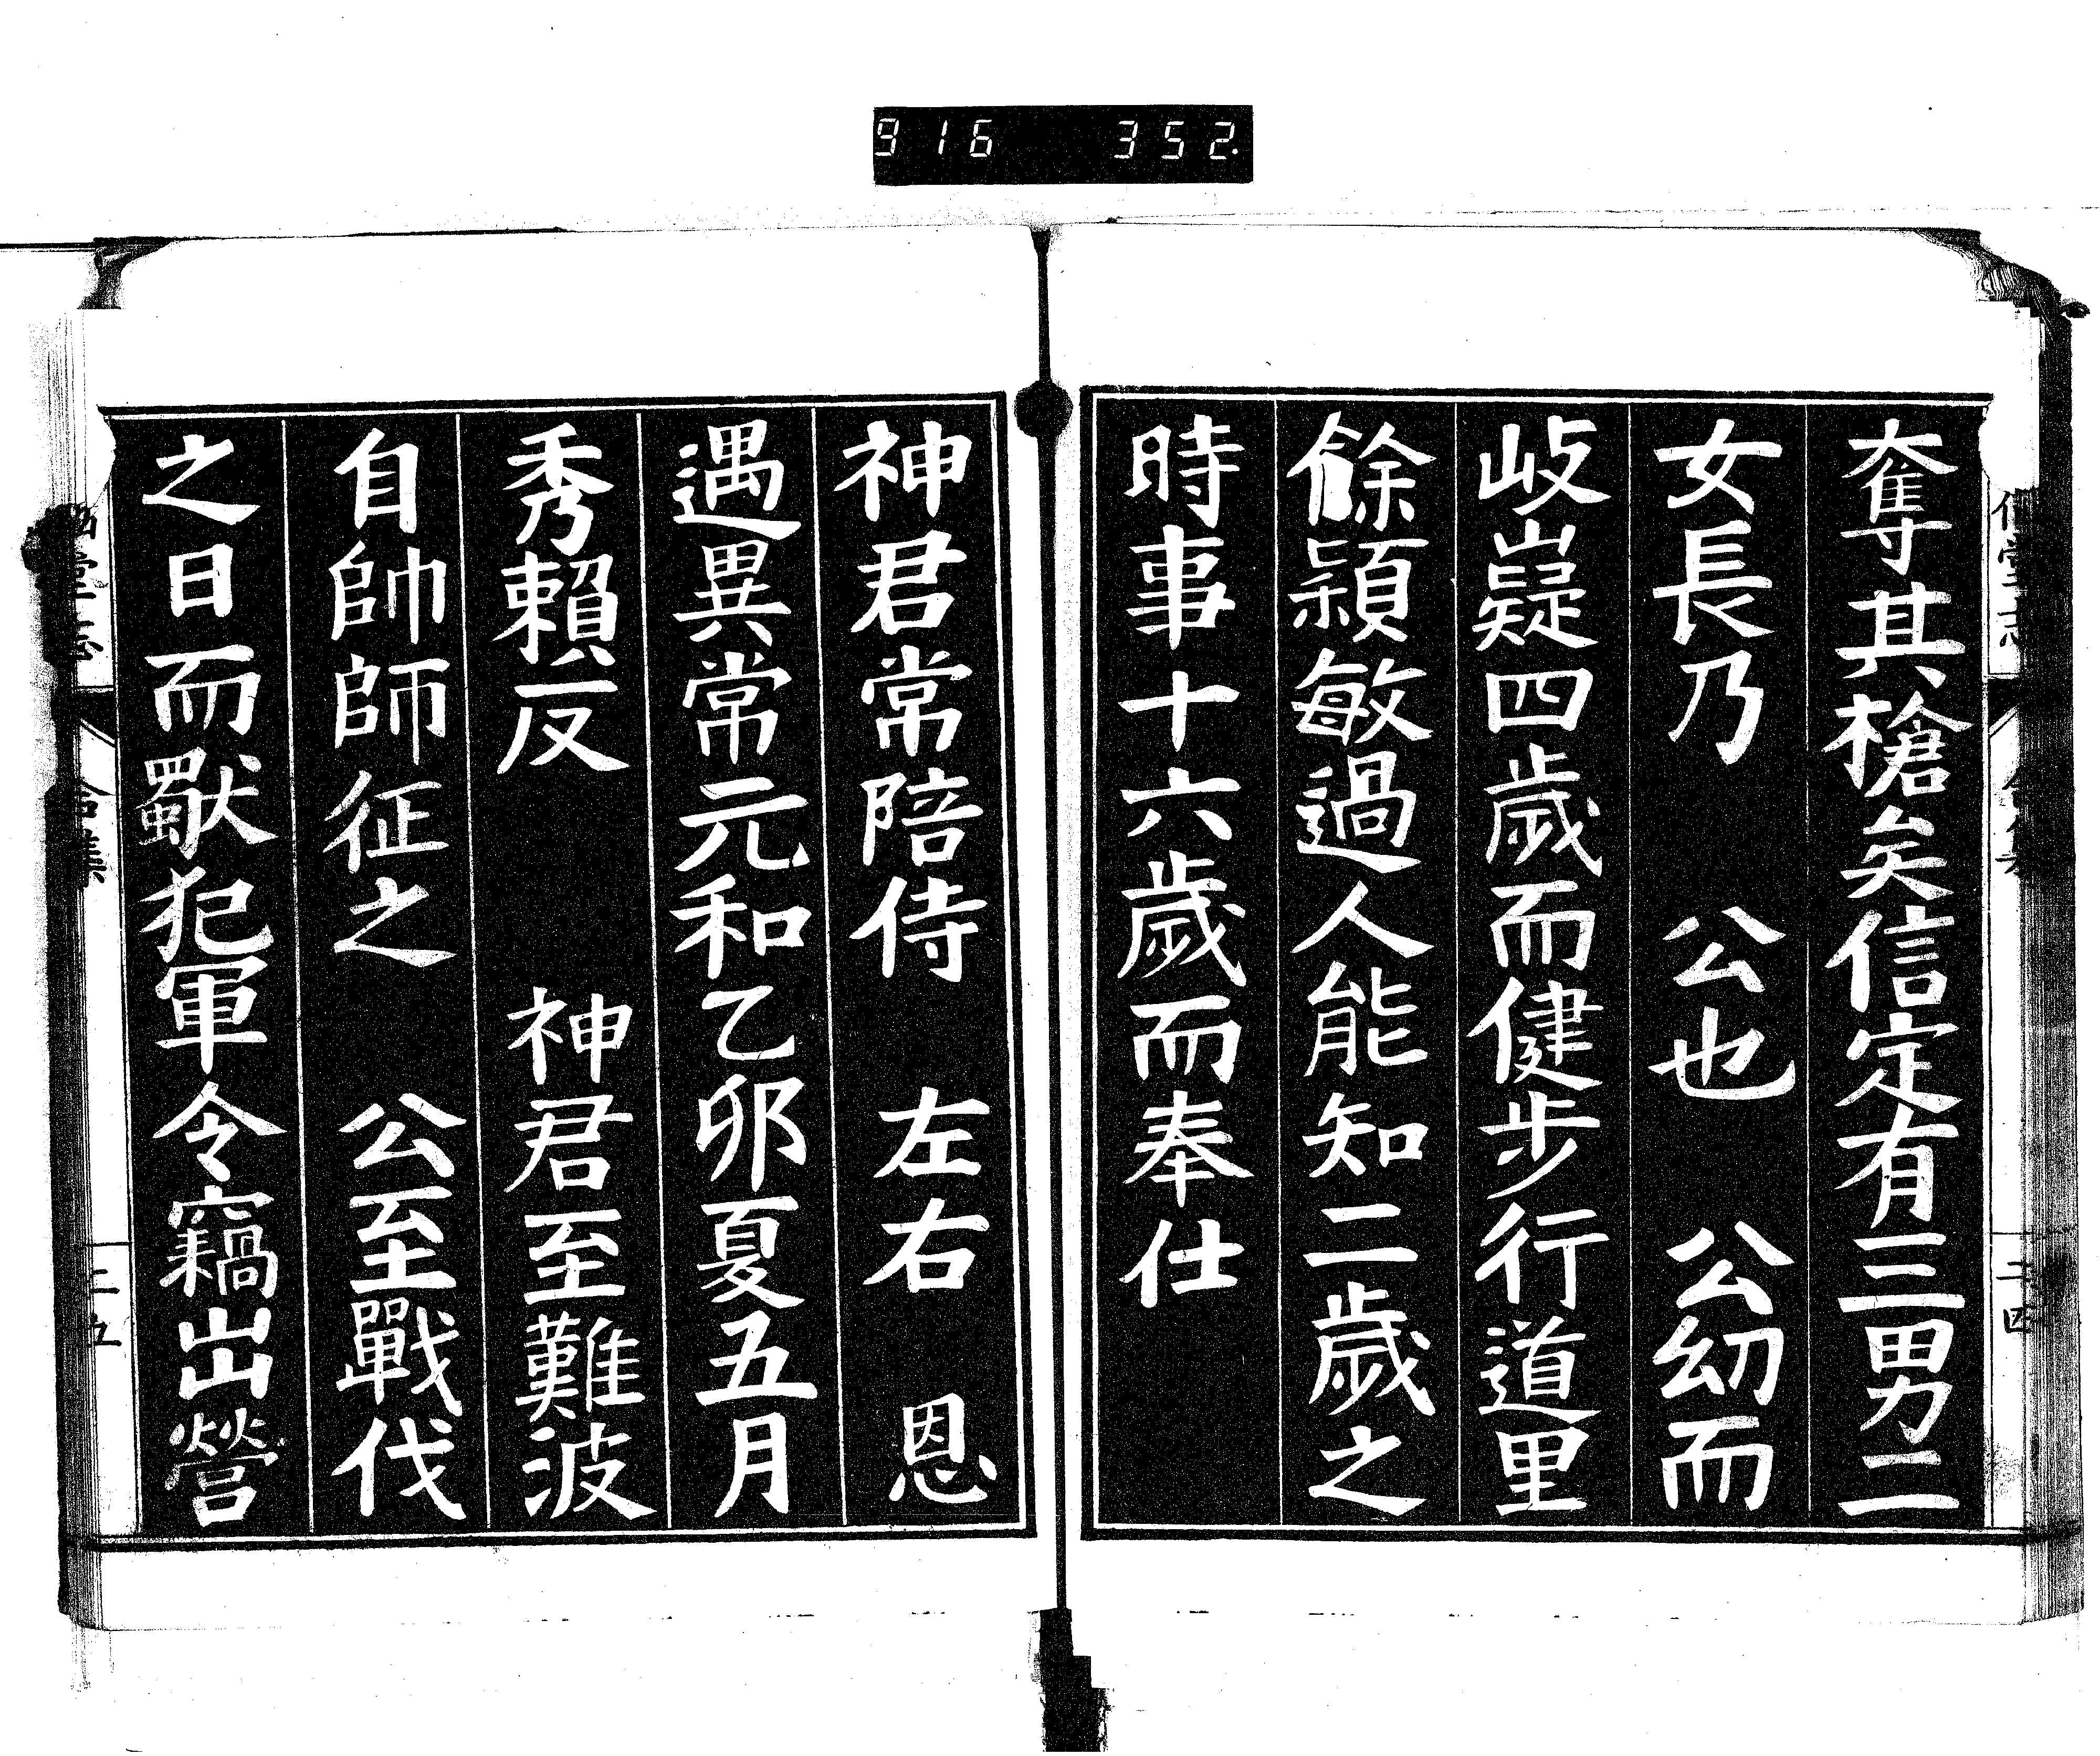 916 352
奪其槍矣信定有三男二
女長乃 公也 公幼而
岐嶷四歲而健步行道里
餘潁敏過人能知二歲之
時事十六歲而奉仕
神君常陪侍 左右 恩
遇異常元和乙卯夏五月
秀賴反 神君至難波
自帥師征之 公至戰伐
之日而獸犯軍令竊出營